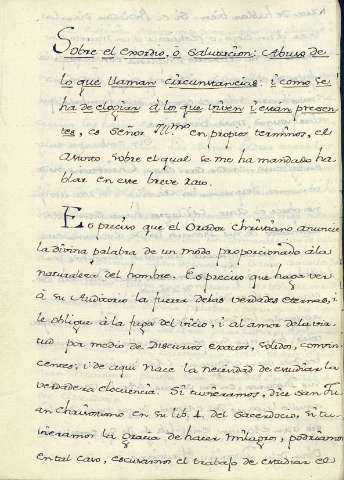 Sobre el exordio, ò salutacion: Abuso de
lo que llaman circunstancias: i como se
ha de elogiar à los que viven i están presen-
tes, es Señor Yll.mo en propios terminos, el
asunto sobre el qual se me ha mandado ha-
blar en este breve rato.
Es preciso que el Orador Christiano anuncie
la divina palabra de un modo proporcionado à la
naturaleza del hombre. Es preciso que haga ver
à su Auditorio la fuerza delas verdades eternas, i
le oblique à la fuga del vicio, i al amor dela vir-
tud por medio de Discursos exactos, solidos, convin-
centes; i de aqui nace la necesidad de estudiar la
verdadera elocuencia. Si tuvieramos, dice san Ju-
an chrisostomo en su lib. 4. del Sacerdocio, si tu-
vieramos la gracia de hacer milagros, podriamos
ental caso, escusarnos el trabajo de estudiar el